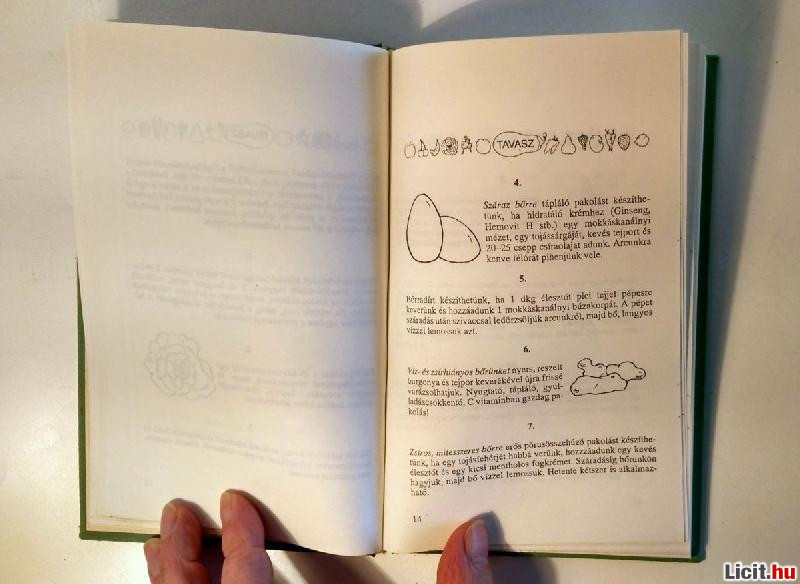 TAVASZ
4.
Száraz bőrre tápláló pakolást készíthe-
tünk, ha hidratáló krémhez (Ginseng,
Hemovit H stb.) egy mokkáskanálnyi
mézet, egy tojássárgáját, kevés tejport és
20–25 csepp csíraolajat adunk. Arcunkra
kenve félórát pihenjünk vele.
5.
Bőrradírt készíthetünk, ha 1 dkg élesztőt pici tejjel pépesre
keverünk és hozzáadunk 1 mokkáskanálnyi búzakorpát. A pépet
száradás után szivaccsal ledörzsöljük arcunkról, majd bő, langyos
vízzel lemossuk azt.
6.
Víz- és zsírhiányos bőrünket nyers, reszelt
burgonya és tejpor keverékével újra frissé
varázsolhatjuk. Nyugtató, tápláló, gyul-
ladáscsökkentő, C vitaminban gazdag pa-
kolás!
7.
Zsíros, mitesszeres bőrre erős pórusösszehúzó pakolást készíthe-
tünk, ha egy tojásfehérjét habbá verünk, hozzáadunk egy kevés
élesztőt és egy kicsi mentholos fogkrémet. Száradásig bőrünkön
hagyjuk, majd bő vízzel lemossuk. Hetente kétszer is alkalmaz-
ható.
14
Licit.hu